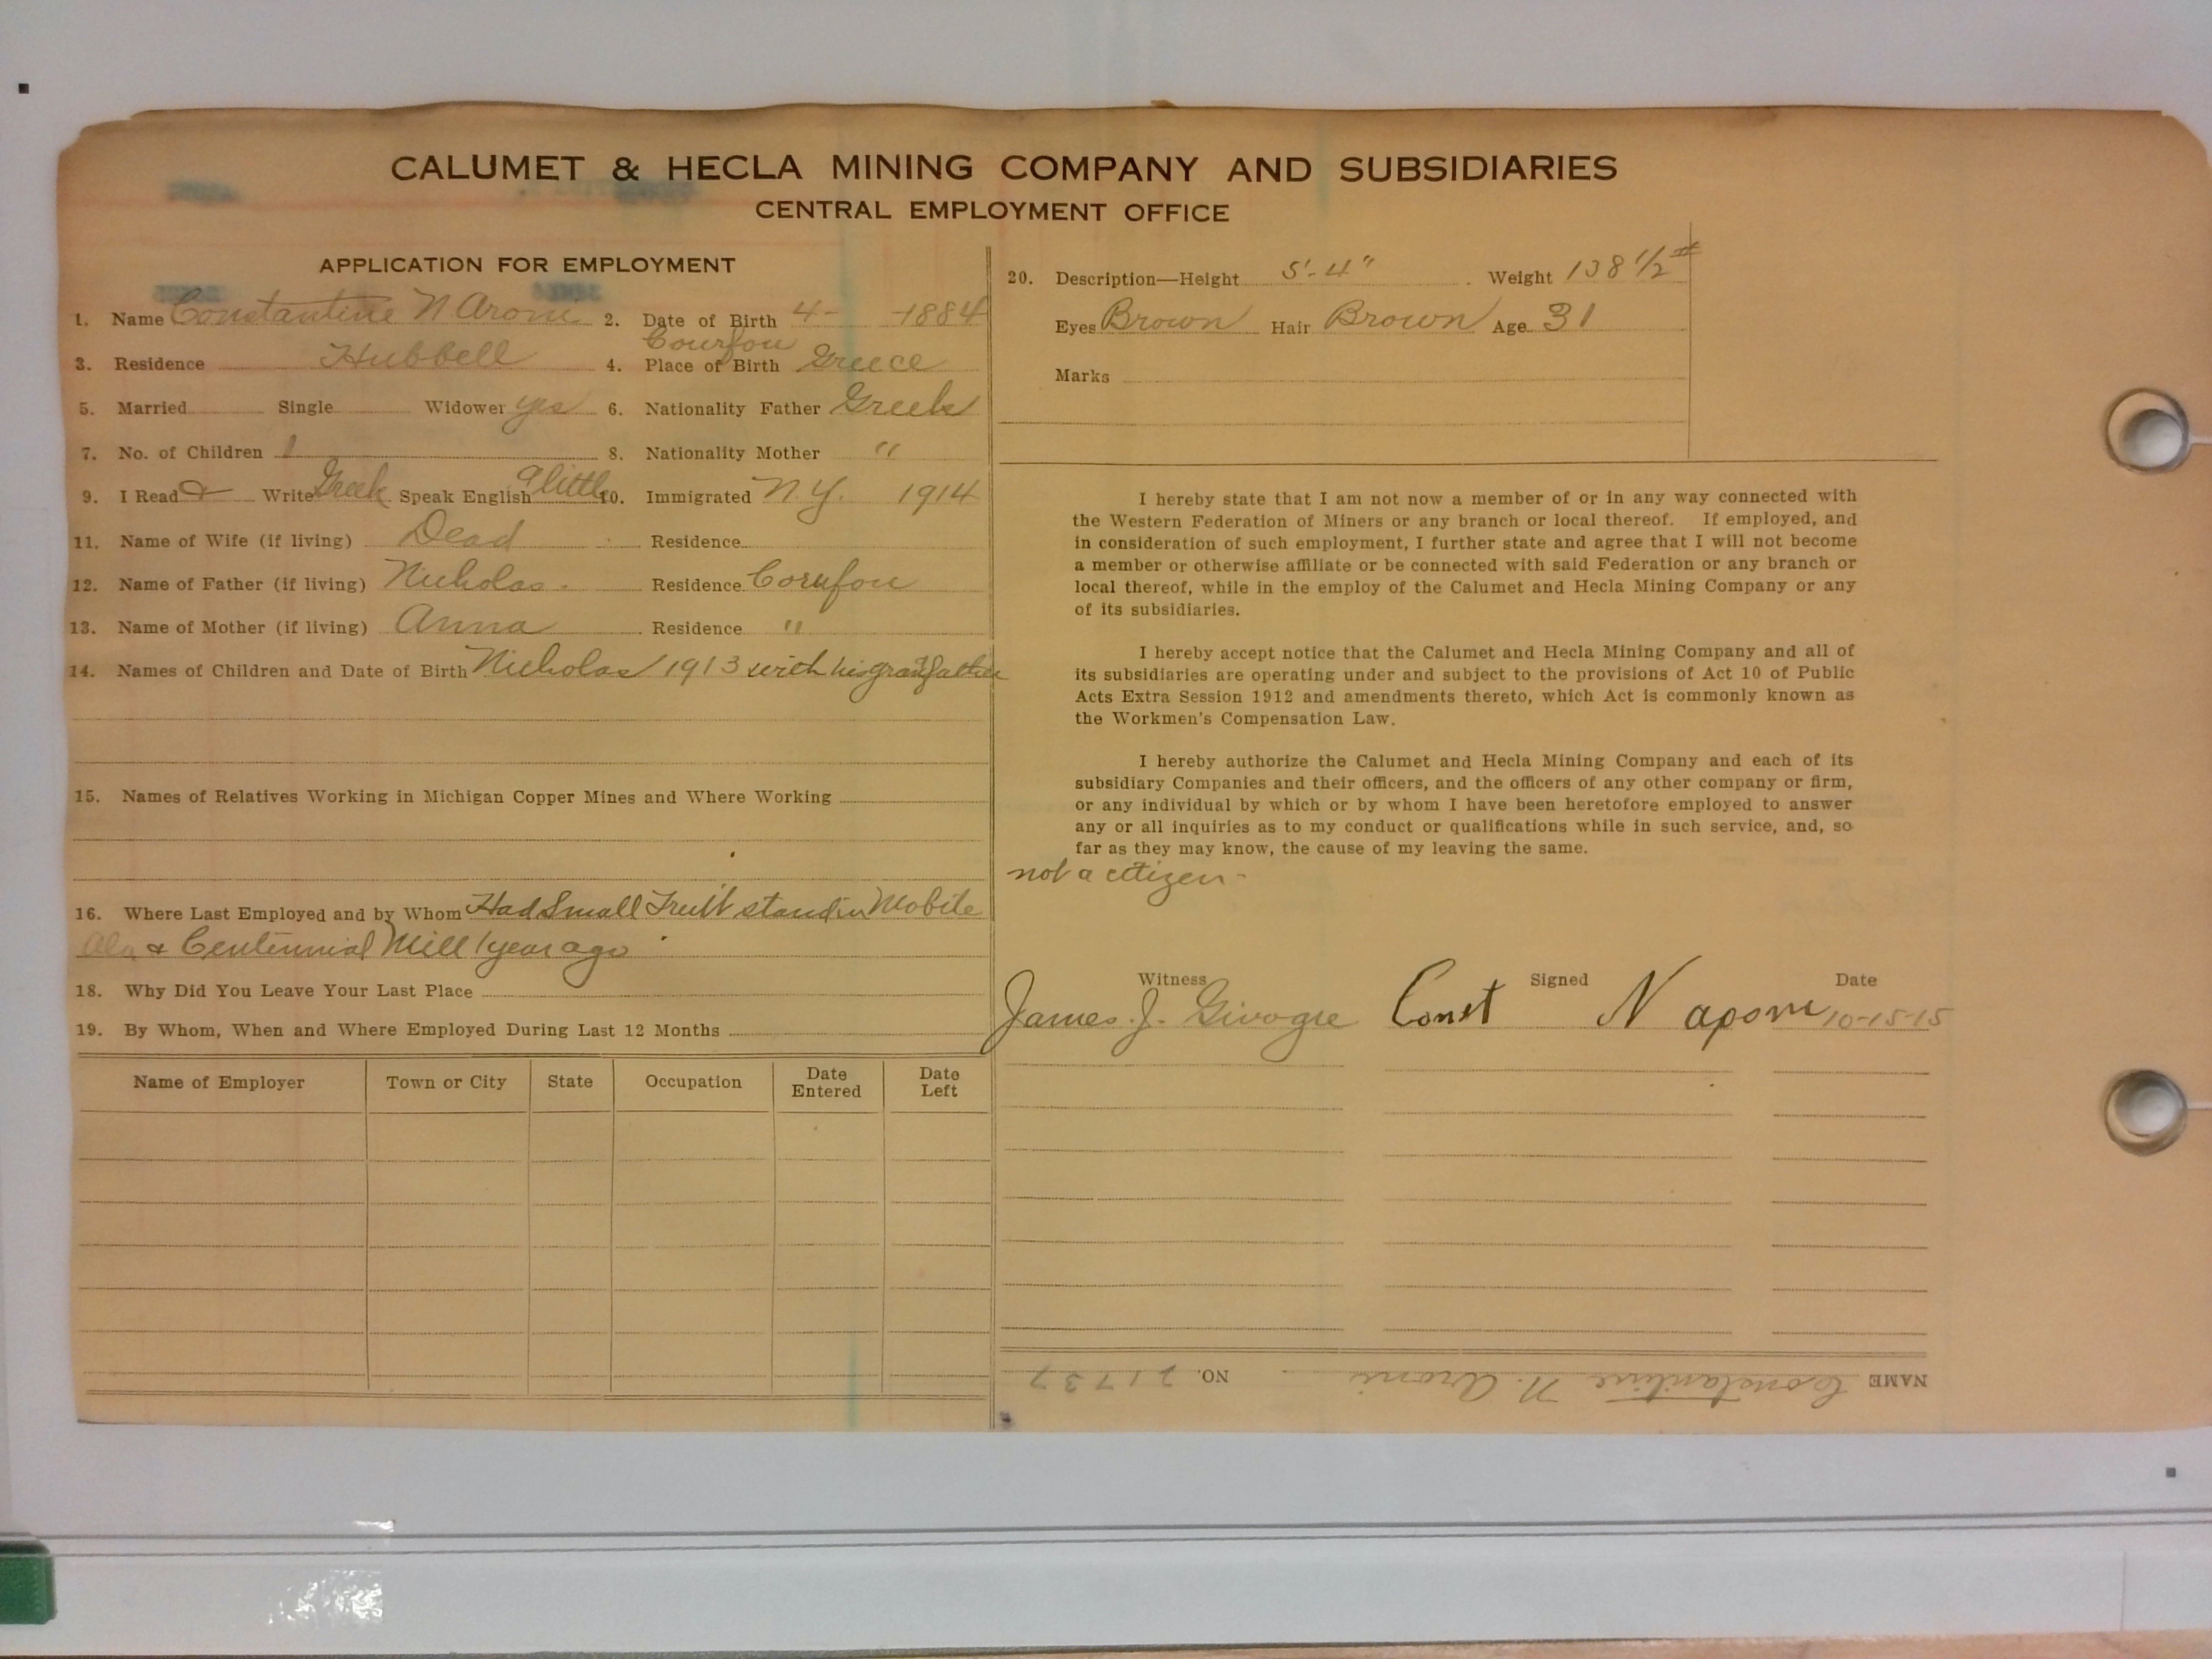 CALUMET & HECLA MINING COMPANY AND SUBSIDIARIES
CENTRAL EMPLOYMENT OFFICE
APPLICATION FOR EMPLOYMENT
1. Name Constantine N Aroni 2. Date of Birth 4- -1884
Courfou
3. Residence Hubbell 4. Place of Birth Greece
5. Married Single Widower yes 6. Nationality Father Greek
7. No. of Children 1 8. Nationality Mother "
9. I Read & Write Greek Speak English a little 10. Immigrated N.Y. 1914
11. Name of Wife (if living) Dead Residence
12. Name of Father (if living) Nicholas. Residence Corufou
13. Name of Mother (if living) Anna Residence "
14. Names of Children and Date of Birth Nicholas 1913 with his grandfather
15. Names of Relatives Working in Michigan Copper Mines and Where Working
16. Where Last Employed and by Whom Had Small Fruit stand in Mobile
Ala & Centennial Mill 1 year ago
18. Why Did You Leave Your Last Place
19. By Whom, When and Where Employed During Last 12 Months
Name of Employer Town or City State Occupation Date Entered Date Left
20. Description—Height 5'-4" Weight 138 1/2 #
Eyes Brown Hair Brown Age 31
Marks
I hereby state that I am not now a member of or in any way connected with
the Western Federation of Miners or any branch or local thereof. If employed, and
in consideration of such employment, I further state and agree that I will not become
a member or otherwise affiliate or be connected with said Federation or any branch or
local thereof, while in the employ of the Calumet and Hecla Mining Company or any
of its subsidiaries.
I hereby accept notice that the Calumet and Hecla Mining Company and all of
its subsidiaries are operating under and subject to the provisions of Act 10 of Public
Acts Extra Session 1912 and amendments thereto, which Act is commonly known as
the Workmen's Compensation Law.
I hereby authorize the Calumet and Hecla Mining Company and each of its
subsidiary Companies and their officers, and the officers of any other company or firm,
or any individual by which or by whom I have been heretofore employed to answer
any or all inquiries as to my conduct or qualifications while in such service, and, so
far as they may know, the cause of my leaving the same.
not a citizen-
Witness Signed Date
James. J. Const N 10-15-15
NAME Constantine N. Aroni NO. 21737